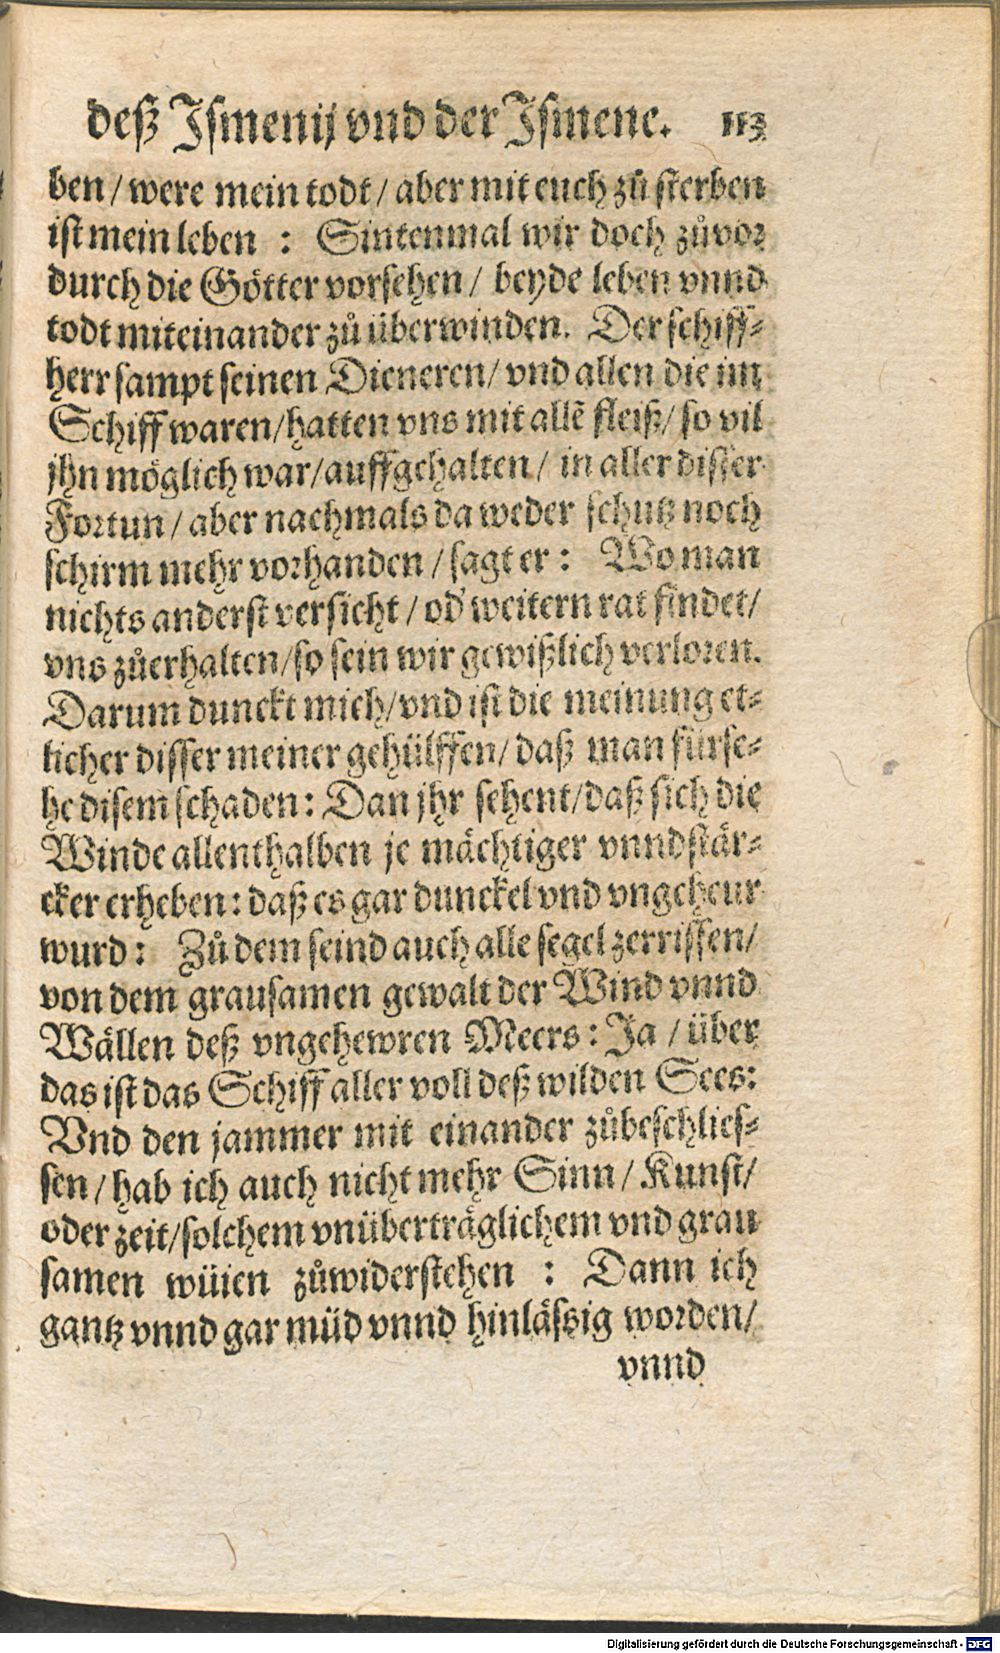 deß Ismenij vnd der Ismene. 113
ben / were mein todt / aber mit euch zů sterben
ist mein leben : Sintenmal wir doch zůvor
durch die Götter vorsehen / beyde leben vnnd
todt miteinander zů überwinden. Der schiff-
herr sampt seinen Dieneren / vnd allen die im
Schiff waren / hatten vns mit allē fleiß / so vil
jhn möglich war / auffgehalten / in aller disser
Fortun / aber nachmals da weder schutz noch
schirm mehr vorhanden / sagt er : Wo man
nichts anderst versicht / od' weitern rat findet /
vns zůerhalten / so sein wir gewißlich verloren.
Darum dunckt mich / vnd ist die meinung et-
licher disser meiner gehülffen / daß man fürse-
he disem schaden : Dan jhr sehent / daß sich die
Winde allenthalben je mächtiger vnnd stär-
cker erheben : daß es gar dunckel vnd vngeheur
wurd : Zů dem seind auch alle segel zerrissen /
von dem grausamen gewalt der Wind vnnd
Wällen deß vngehewren Meers : Ja / über
das ist das Schiff aller voll deß wilden Sees :
Vnd den jammer mit einander zůbeschlies-
sen / hab ich auch nicht mehr Sinn / Kunst /
oder zeit / solchem vnüberträglichem vnd grau
samen wüien zůwiderstehen : Dann ich
gantz vnnd gar müd vnnd hinlässig worden /
vnnd
Digitalisierung gefördert durch die Deutsche Forschungsgemeinschaft - DFG